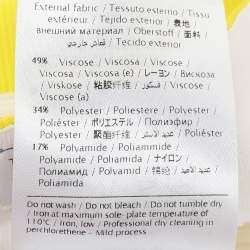 External fabric / Tessuto esterno / Tissu
extérieur / Tejido exterior / 表地
внешний материал / Oberstoff / 面料 /
Tecido exterior / قماش خارجي
49% Viscose / Viscosa / Viscose /
Viscosa / Viscosa (e) / レーヨン / Вискоза
/ Viskose / 粘胶纤维 / فسكوز / Viscose /
Viscose (a)
34% Polyester / Poliestere / Polyester /
Poliéster / ポリエステル / Полиэфир /
Polyester / 聚酯纤维 / / Poliéster
17% Polyamide / Poliammide /
Polyamide / Poliamida / ナイロン /
Полиамид / Polyamid / 锦纶 / /
Poliamida
Do not wash / Do not bleach / Do not tumble dry
/ Iron at maximum sole-plate temperature of
110°C / Iron, low / Professional dry cleaning in
perchlorethene - Mild process